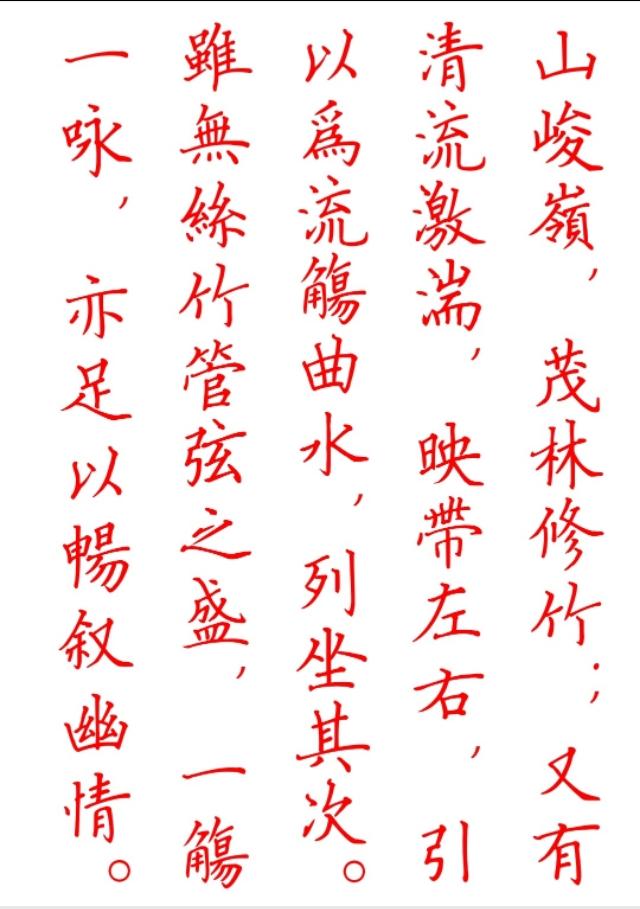 山峻嶺，茂林修竹；又有
清流激湍，映帶左右，引
以爲流觴曲水，列坐其次。
雖無絲竹管弦之盛，一觴
一咏，亦足以暢叙幽情。